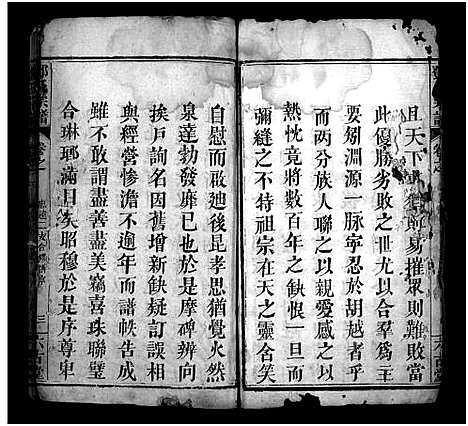 且天下 獨則易摧眾則難散當
此優勝劣敗之世尤以合羣為主
要矧淵源一脉寧忍於胡越者乎
而两分族人聯之以親愛感之以
熱忱竟將數百年之缺恨一旦而
彌縫之不特祖宗在天之靈含笑
自慰而啟廸後昆孝思猶覺火然
泉達勃發靡已也於是摩碑辨向
挨戶詢名因舊增新缺疑訂誤相
與經營慘澹不逾年而譜帙告成
雖不敢謂盡善盡美竊喜珠聯璧
合琳瑯滿目矣昭穆於是序尊卑
宗譜
卷之
六